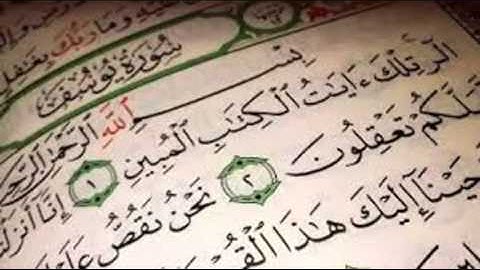 عَلَيْهِ وَمَا رَبُّكَ بِغَٰفِلٍ
سُورَةُ يُوسُفَ
بِسْمِ ٱللَّهِ ٱلرَّحْمَٰنِ ٱلرَّحِيمِ
الٓر تِلْكَ ءَايَٰتُ ٱلْكِتَٰبِ ٱلْمُبِينِ ١ إِنَّآ أَنزَلْ
لَّكُمْ تَعْقِلُونَ ٢ نَحْنُ نَقُصُّ عَ
حَيْنَآ إِلَيْكَ هَٰذَا ٱلْقُرْ